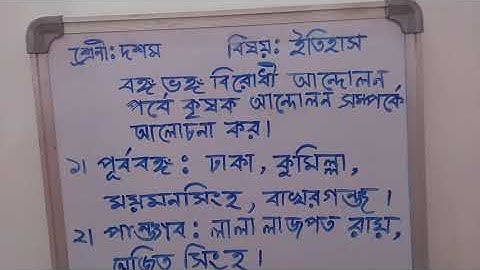 শ্রেণী: দশম বিষয়: ইতিহাস
বঙ্গ ভঙ্গ বিরোধী আন্দোলন
পর্বে কৃষক আন্দোলন সম্পর্কে
আলোচনা কর।
১। পূর্ববঙ্গ: ঢাকা, কুমিল্লা,
ময়মনসিংহ, বাখরগঞ্জ।
২। পাঞ্জাব: লালা লাজপত রায়,
অজিত সিংহ।